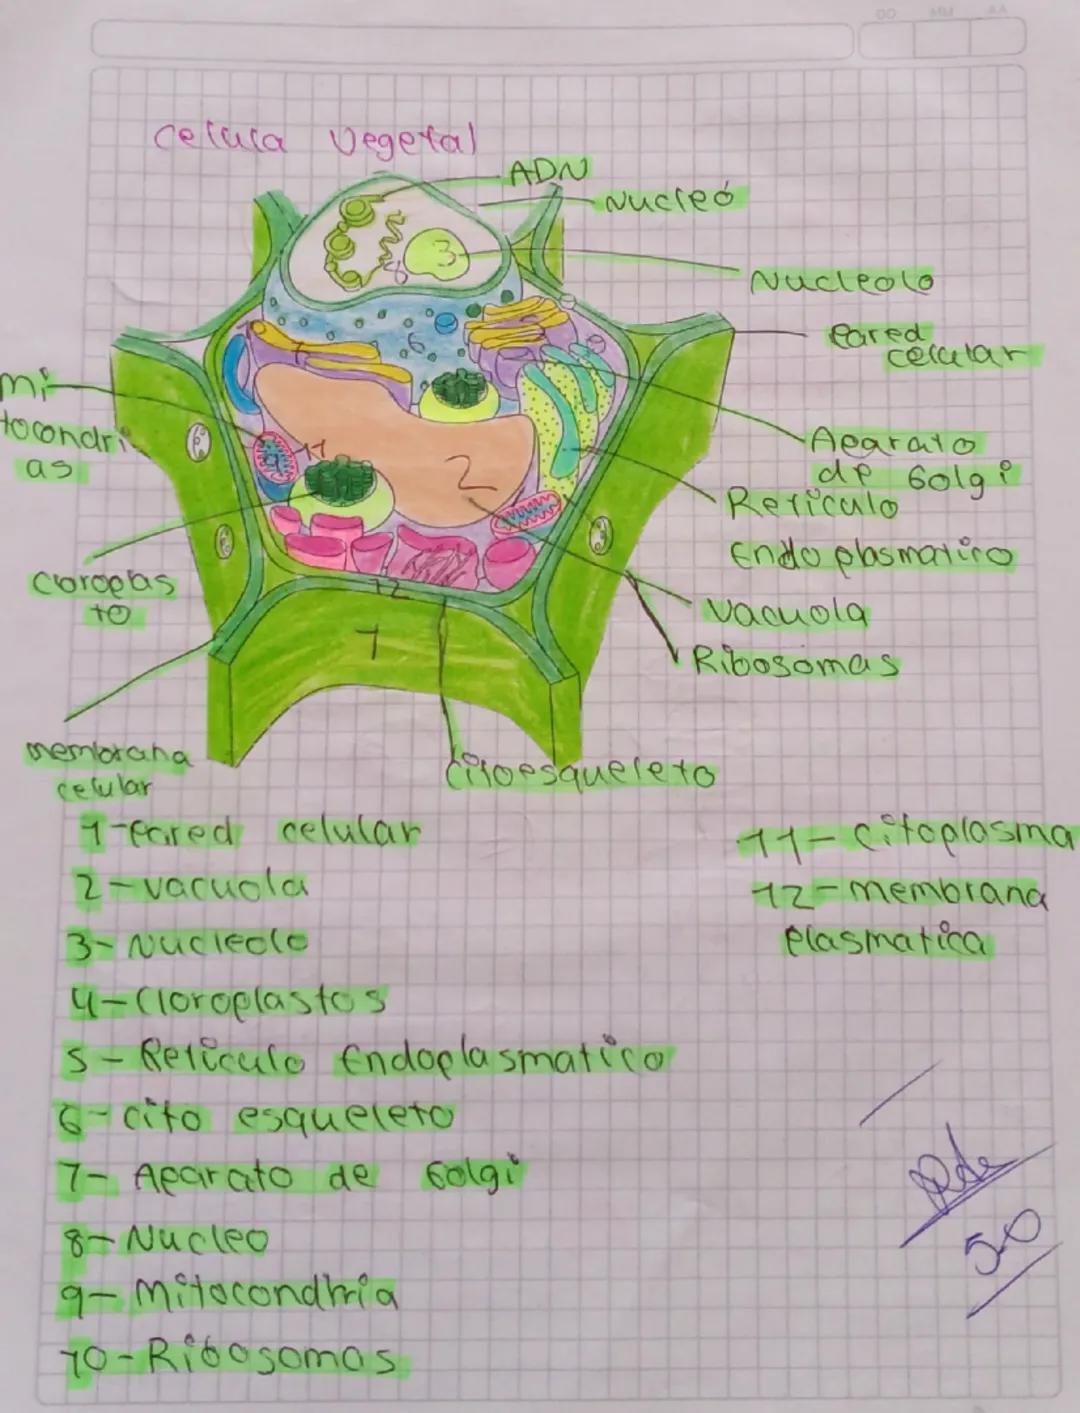 celula vegetal
ADN
Nucleó
Nucleolo
Pared
celular
mi
tocondri
as
Aparato
de Golgi
Reticulo
Endoplasmatico
cloroplas
to
vacuola
Ribosomas
membrana
celular
Citoesqueleto
3
8
6
7
9
11
2
12
1
1-Pared celular
2-vacuola
3-Nucleolo
4-Cloroplastos
5-Reticulo Endoplasmatico
6-cito esqueleto
7-Aparato de Golgi
8-Nucleo
9-Mitocondria
10-Ribosomas
11-citoplasma
12-membrana
Plasmatica
5.0